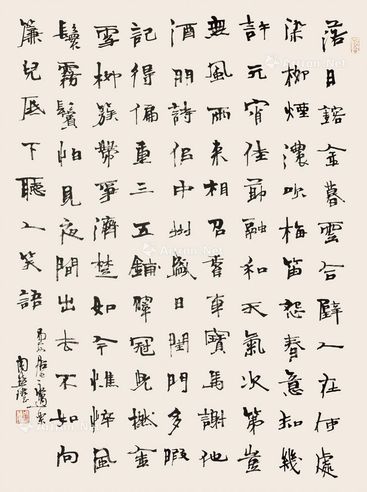 落日鎔金暮雲合璧人在何處
染柳煙濃吹梅笛怨春意知幾
許元宵佳節融和天氣次第豈
無風雨來相召香車寶馬謝他
酒朋詩侶中州盛日閨門多暇
記得偏重三五鋪翠冠兒撚金
雪柳簇帶爭濟楚如今憔悴風
鬟霧鬢怕見夜間出去不如向
簾兒底下聽人笑語
Artron.Net